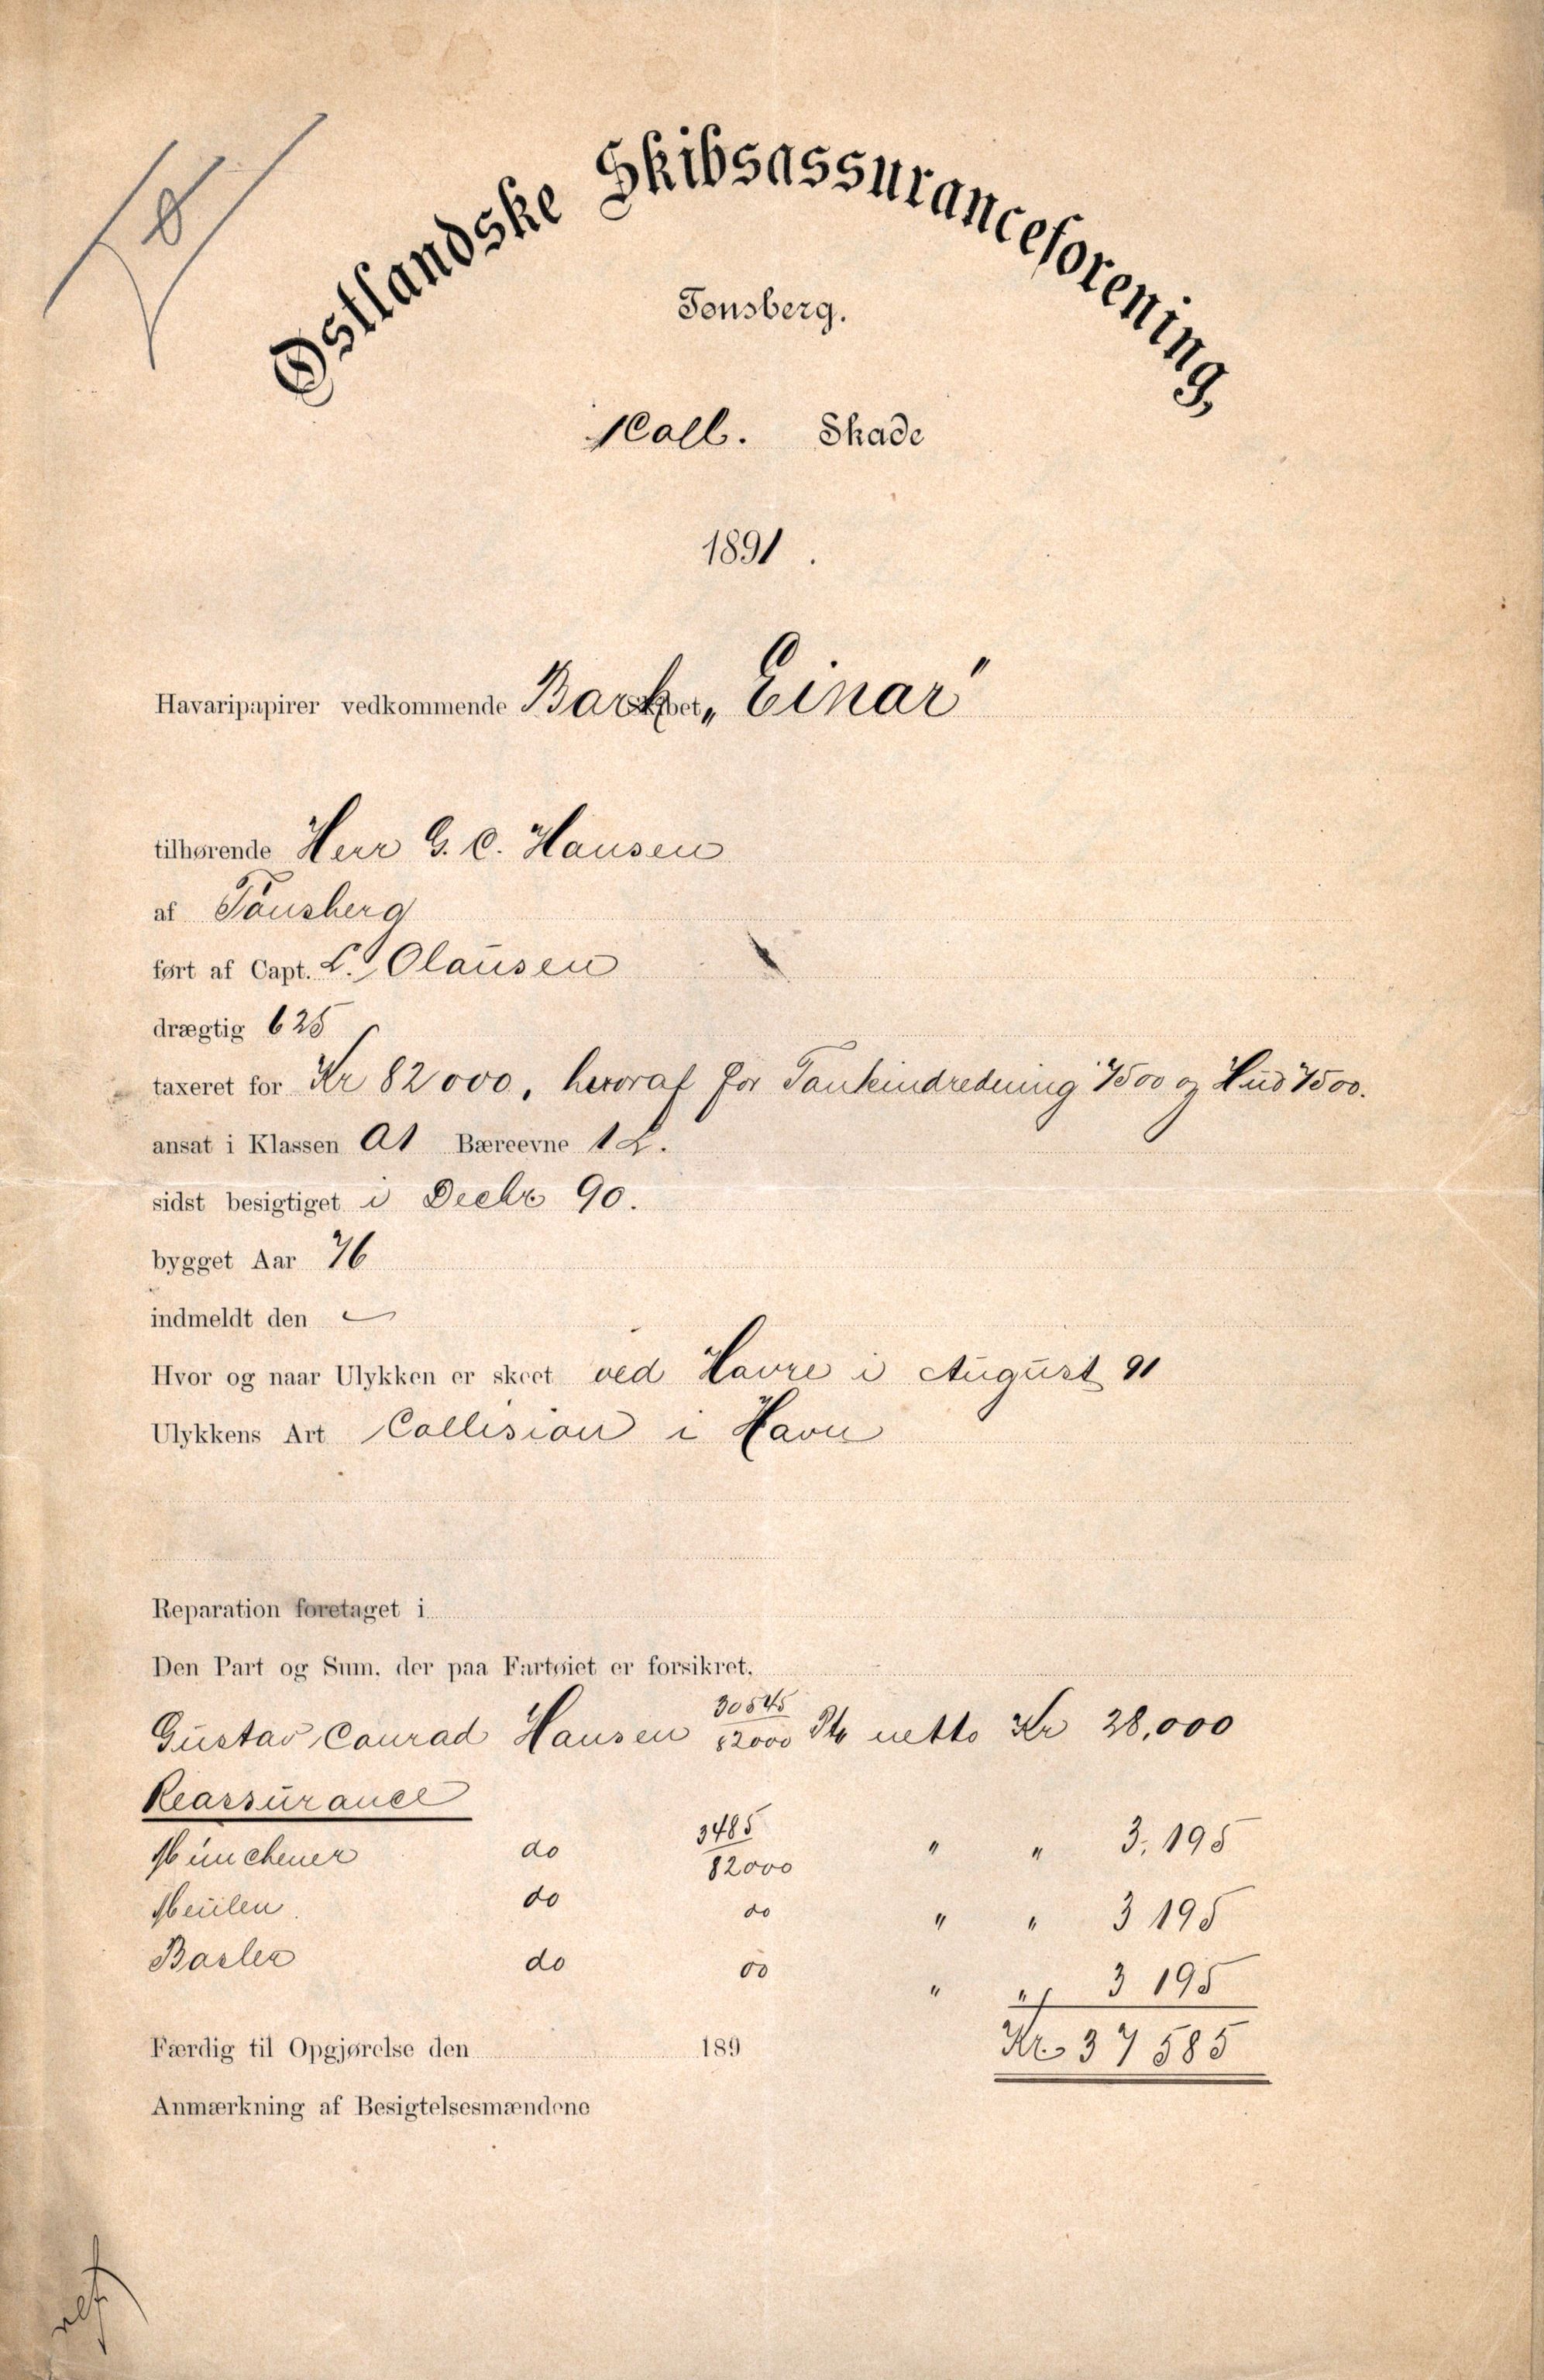 8
Østlandske Skibsassuranceforening,
Tønsberg.
Coll. Skade
1891.
Havaripapirer vedkommende Bark skibet „Einar"
tilhørende Herr G. C. Hansen
af Tønsberg
ført af Capt. L. Olausen
drægtig 625
taxeret for Kr 82000, hvoraf for Tankindredning 7500 og Hud 7500.
ansat i Klassen A1 Bæreevne 1 L.
sidst besigtiget i Decbr 90.
bygget Aar 76
indmeldt den
Hvor og naar Ulykken er skeet ved Havre i August 91
Ulykkens Art Collision i Havn
Reparation foretaget i
Den Part og Sum, der paa Fartøiet er forsikret,
Gustav Conrad Hansen 30545/82000 Pts netto Kr 28,000
Reassurance
Münchener do 3485/82000 " " 3,195
Mülen do do " " 3 195
Basler do do " " 3 195
Kr 37 585
Færdig til Opgjørelse den 189
Anmærkning af Besigtelsesmændene